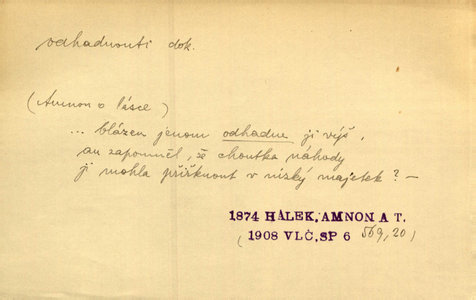 odhadnouti dok.
(Amnon o lásce)
... blázen jenom odhadne ji výš,
an zapomněl, že choutka náhody
ji mohla přiřknout v nízký majetek? —
1874 HÁLEK, AMNON A T.
(1908 VLČ, SP 6 569,20)